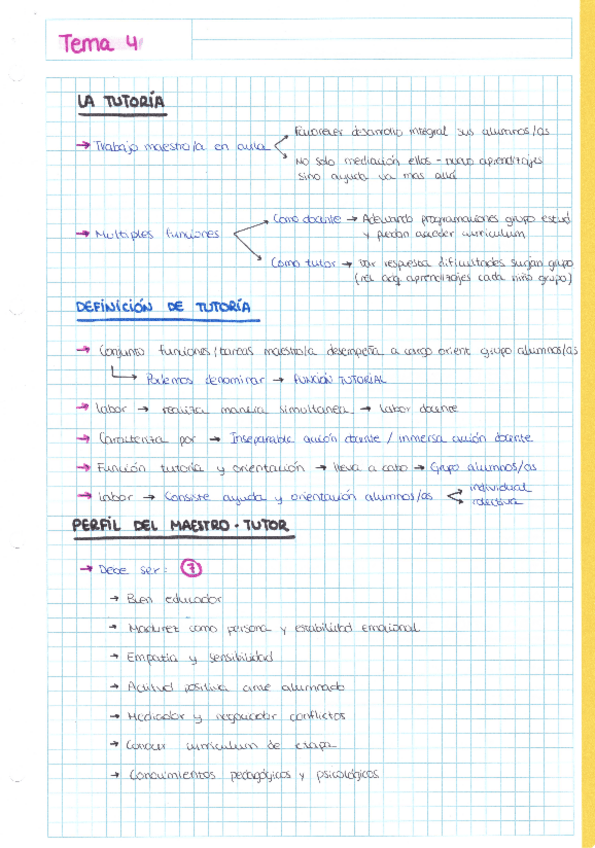 Tema 4
LA TUTORÍA
→ Trabajo maestro/a en aula
Favorecer desarrollo integral sus alumnos/as
No solo mediación ellos - nuevo aprendizajes
sino ayuda va mas allá
→ Multiples funciones
Como docente → Adecuando programaciones grupo estud
y puedan acceder curriculum
Como tutor → Dar respuesta dificultades surjan grupo
(rel. adq. aprendizajes cada niño grupo)
DEFINICIÓN DE TUTORÍA
→ Conjunto funciones/tareas maestro/a desempeña a cargo orient grupo alumnos/as
Podemos denominar → FUNCIÓN TUTORIAL
→ labor → realiza manera simultánea → labor docente
→ Caracteriza por → Inseparable acción docente / inmersa acción docente
→ Función tutoría y orientación → lleva a cabo → Grupo alumnos/as
→ labor → Consiste ayuda y orientación alumnos/as
individual
colectiva
PERFIL DEL MAESTRO - TUTOR
→ Debe ser: 7
→ Bien educador
→ Madurez como persona y estabilidad emocional
→ Empatía y sensibilidad
→ Actitud positiva ante alumnado
→ Mediador y negociador conflictos
→ Conocer curriculum de etapa
→ Conocimientos pedagógicos y psicológicos